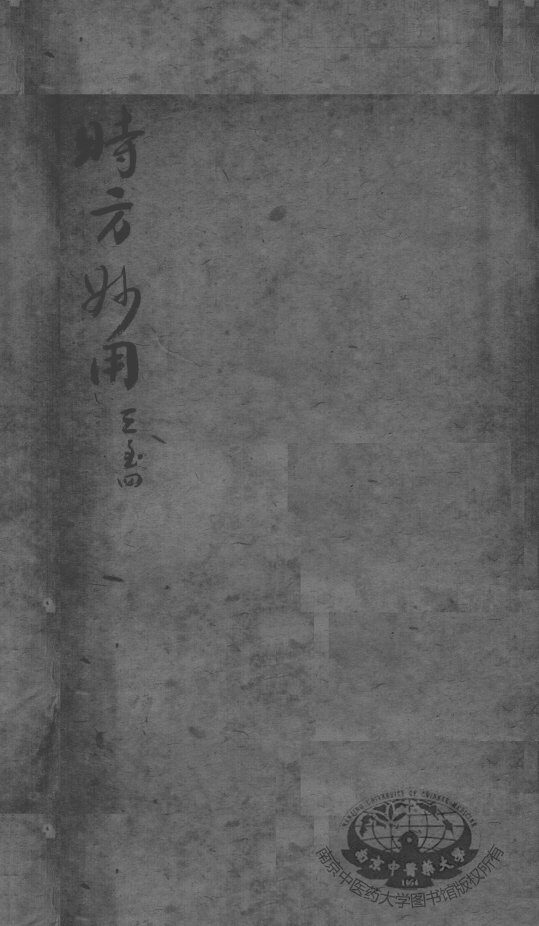 時方妙用
三至四
NANJING UNIVERSITY OF CHINESE MEDICINE
南京中醫藥大學
1954
南京中医药大学图书馆版权所有